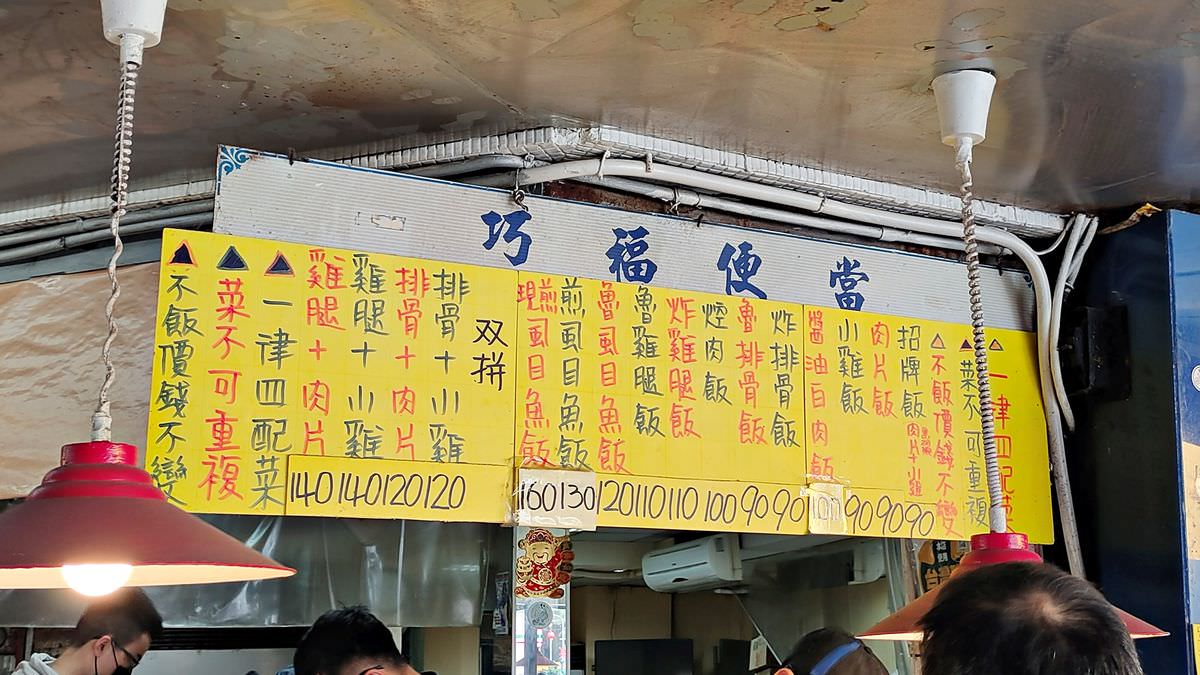 巧福便當
△一律四配菜
▲菜不可重複
△不飯價錢不變
招牌飯
肉片小雞
肉片飯
小雞飯
醬油白肉飯
炸排骨飯
魯排骨飯
焢肉飯
炸雞腿飯
魯雞腿飯
魯虱目魚飯
煎虱目魚飯
現煎虱目魚飯
双拼
排骨+小雞
排骨+肉片
雞腿+小雞
雞腿+肉片
▲一律四配菜
▲菜不可重複
▲不飯價錢不變
140 140 120 120
160 130 120 110 110 100 90 90
100 90 90 90